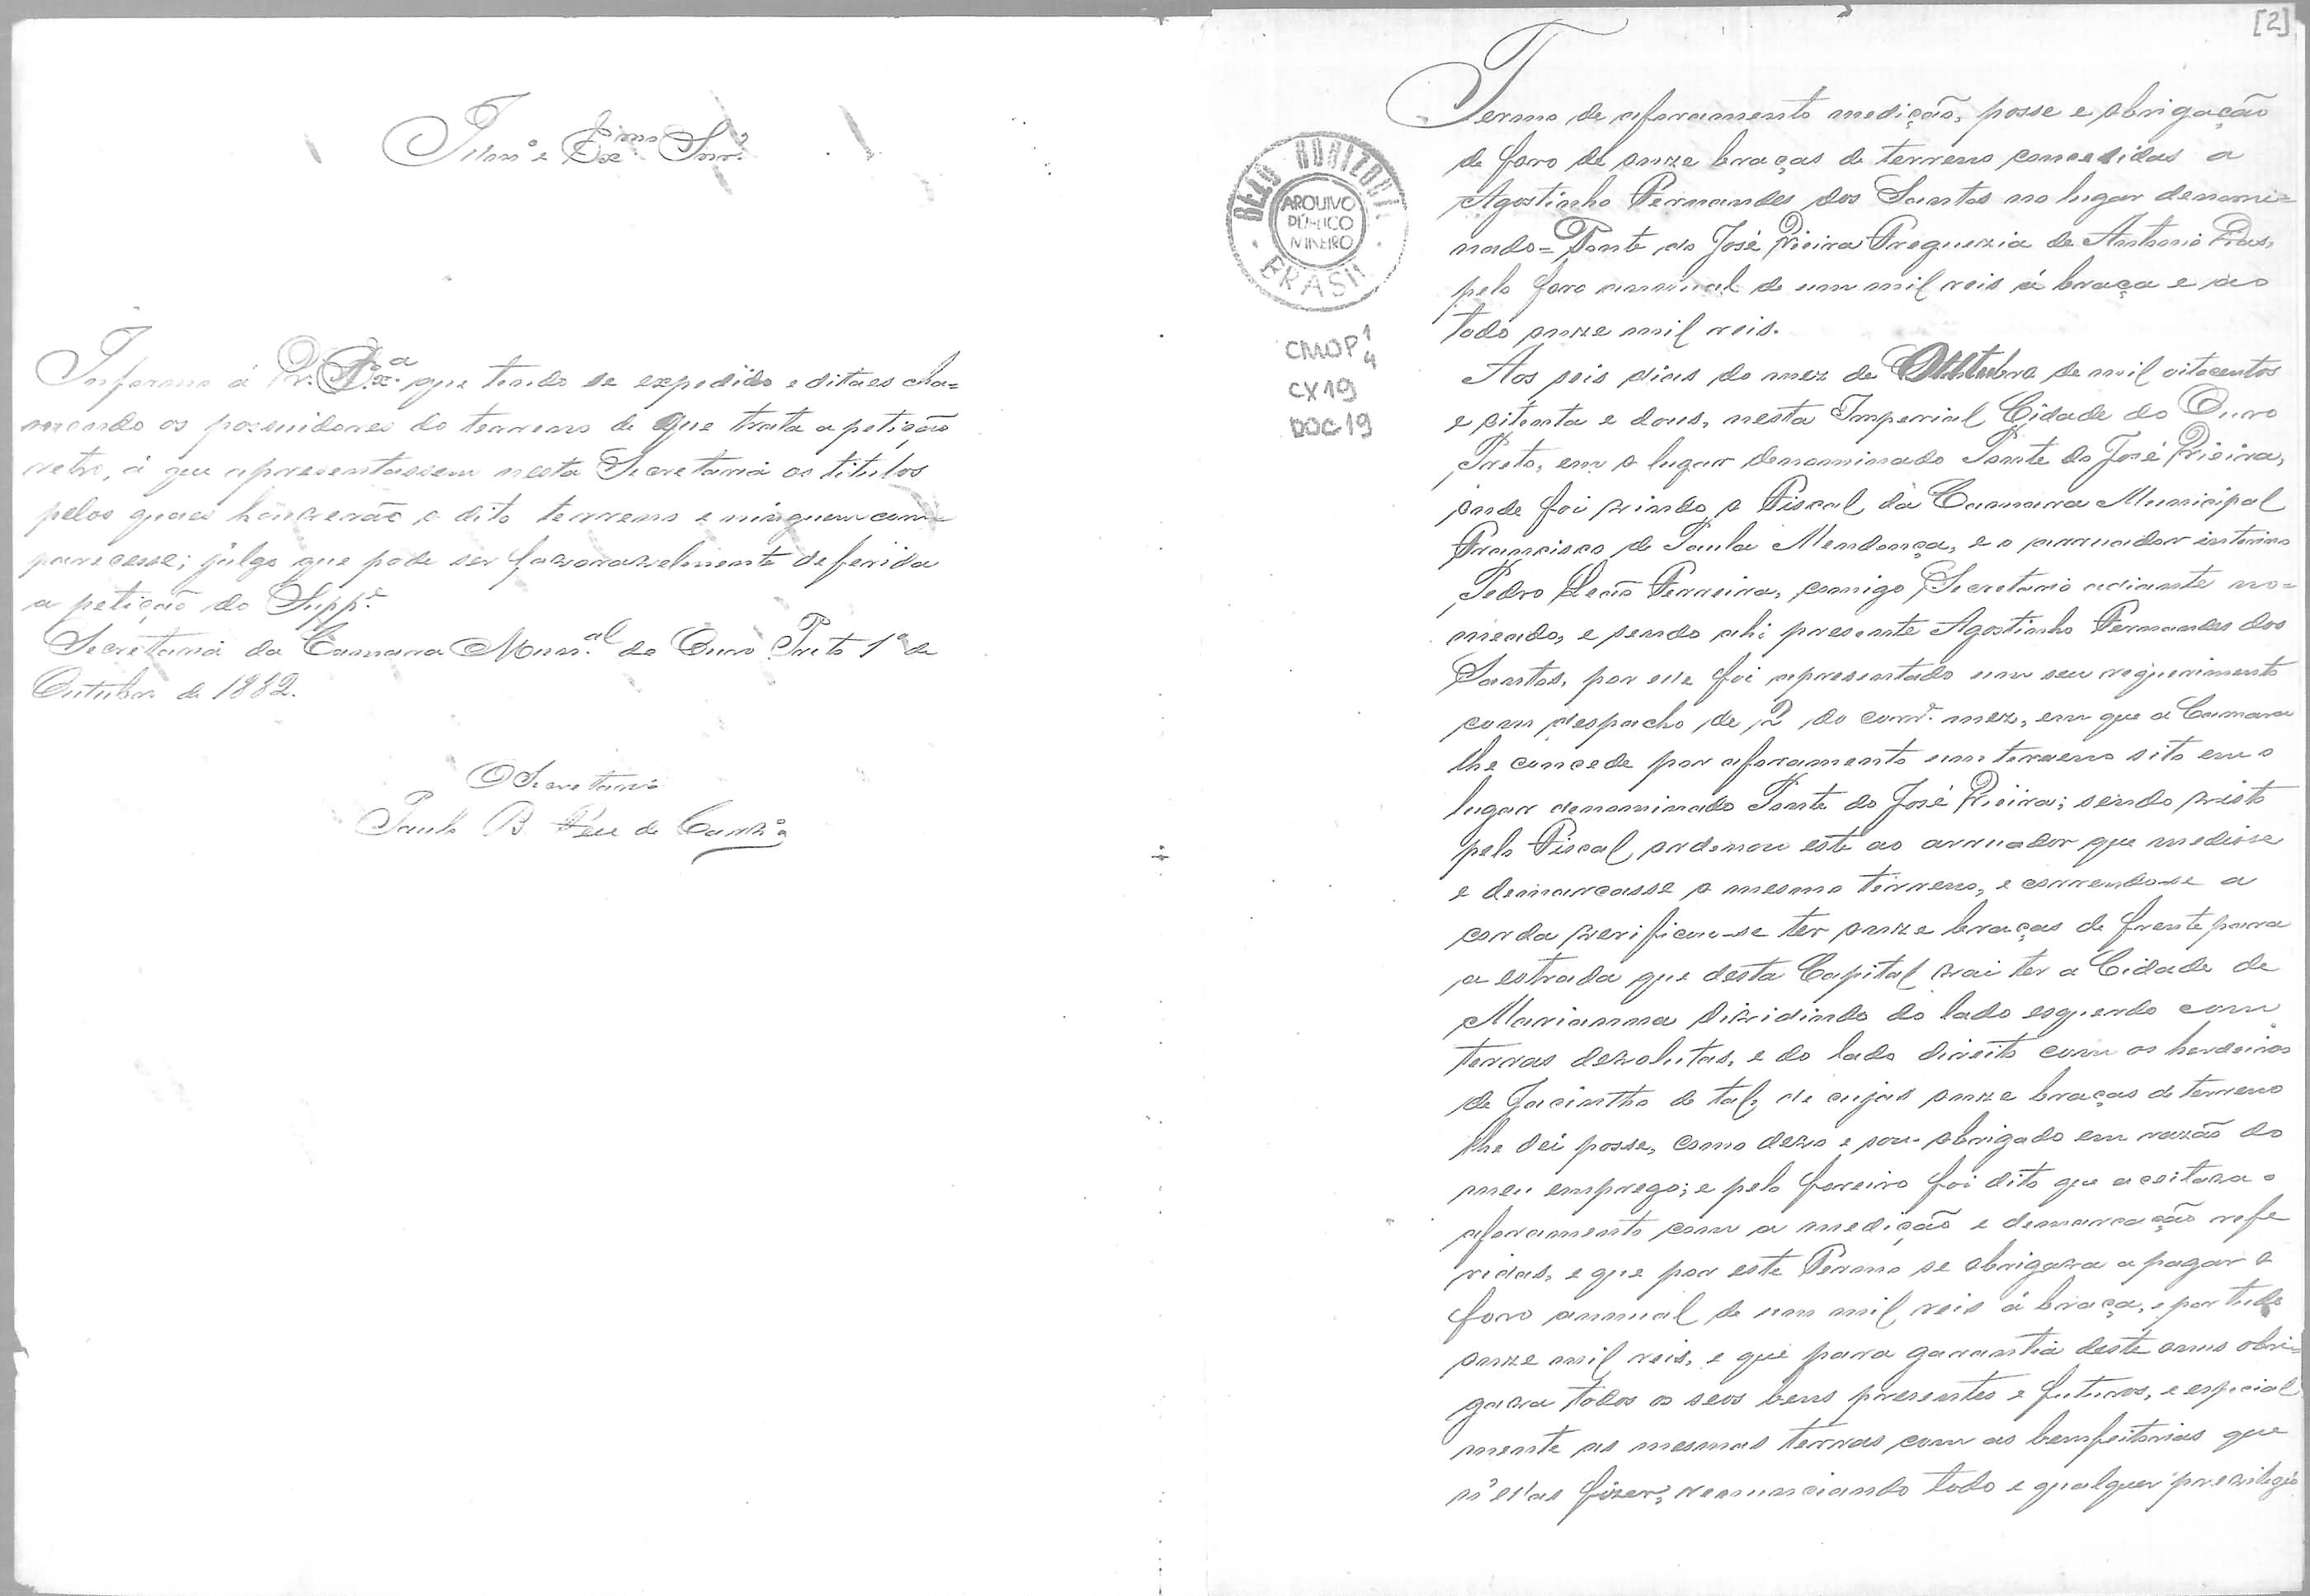 Illmo. e Exmo. Snr.
Informo á V. Exa. que tendo se expedido editaes cha=
mando os possuidores do terreno de que trata a petição
retro, á que apresentassem nesta Secretaria os titulos
pelos quaes houverão o dito terreno e ninguem com=
parecesse; julgo que pode ser favoravelmente deferida
a petição do Suppe.
Secretaria da Camara Munal. do Ouro Preto 1º de
Outubro de 1882.
O Secretario
Paulo B.
[2]
Termo de aforamento medição, posse e obrigação
de foro de onze braças de terreno concedidas a
Agostinho Fernandes dos Santos no lugar denomi=
nado=Ponte do José Vieira Freguezia de Antonio Dias,
pelo foro annual de um mil reis á braça e ao
todo onze mil reis.
Aos seis dias do mez de Outubro de mil oitocentos
e oitenta e dous, nesta Imperial Cidade do Ouro
Preto, em o lugar denominado Ponte do José Vieira,
onde foi vindo o Fiscal da Camara Municipal
Francisco de Paula Mendonça, e o arruador interino
Pedro Leão Ferreira, comigo Secretario adiante no=
meado, e sendo ahi presente Agostinho Fernandes dos
Santos, por elle foi apresentado um seu requerimento
com despacho de 2 do corre. mez, em que a Camara
lhe concede por aforamento um terreno sito em o
lugar denominado Ponte do José Vieira; sendo visto
pelo Fiscal ordenou este ao arruador que medisse
e demarcasse o mesmo terreno, e correndo-se a
corda verificou-se ter onze braças de frente para
a estrada que desta Capital vai ter a Cidade de
Marianna dividindo do lado esquerdo com
terras devolutas, e do lado direito com os herdeiros
de Jacintho de tal, de cujas onze braças de terreno
lhe dei posse, como devo e sou obrigado em razão do
meu emprego; e pelo foreiro foi dito que aceitava o
aforamento com a medição e demarcação refe
ridas, e que por este Termo se obrigava a pagar o
foro annual de um mil reis á braça, e por tudo
onze mil reis, e que para garantia deste onus obri=
gava todos os seos bens presentes e futuros, e especial
mente as mesmas terras com as bemfeitorias que
n'ellas fizer, renunciando todo e qualquer previlegio
BELO HORIZONTE
ARQUIVO
PÚBLICO
MINEIRO
BRASIL
CMOP 1/4
CX19
DOC19